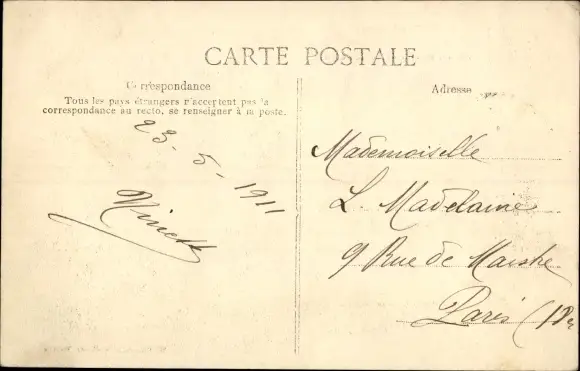 CARTE POSTALE
Correspondance
Tous les pays étrangers n'acceptent pas la
correspondance au recto, se renseigner à la poste.
23-5-1911
Ninette
Adresse
Mademoiselle
L. Madelaine
9 Rue de
Paris (